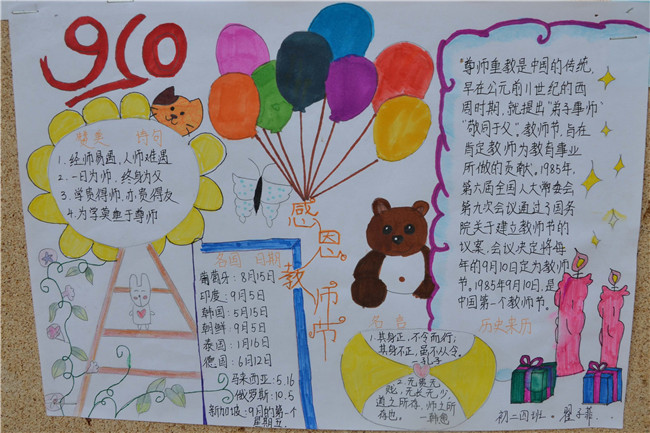 910
赞美 诗句
1. 经师易遇,人师难遇
2. 一日为师,终身为父
3. 学贵得师,亦贵得友
4. 为学莫重于尊师
感恩教师节
各国 日期
葡萄牙:8月15日
印度:9月5日
韩国:5月15日
朝鲜:9月5日
泰国:1月16日
德国:6月12日
马来西亚:5.16
俄罗斯:10.5
新加坡:9月的第一个
星期五
名言
1. 其身正,不令而行,
其身不正,虽不从令。
—孔子
2. 无贵无
贱,无长无少,
道之所存,师之所
存也。 —韩愈
"尊师重教是中国的传统,
早在公元前11世纪的西
周时期,就提出"弟子事师,
"敬同于父"。教师节,旨在
肯定教师为教育事业
所做的贡献。1985年,
第六届全国人大常委会
第九次会议通过了国务
院关于建立教师节的
议案,会议决定将每
年的9月10日定为教师
节。1985年9月10日,是
中国第一个教师节。
历史来历
初二四班。